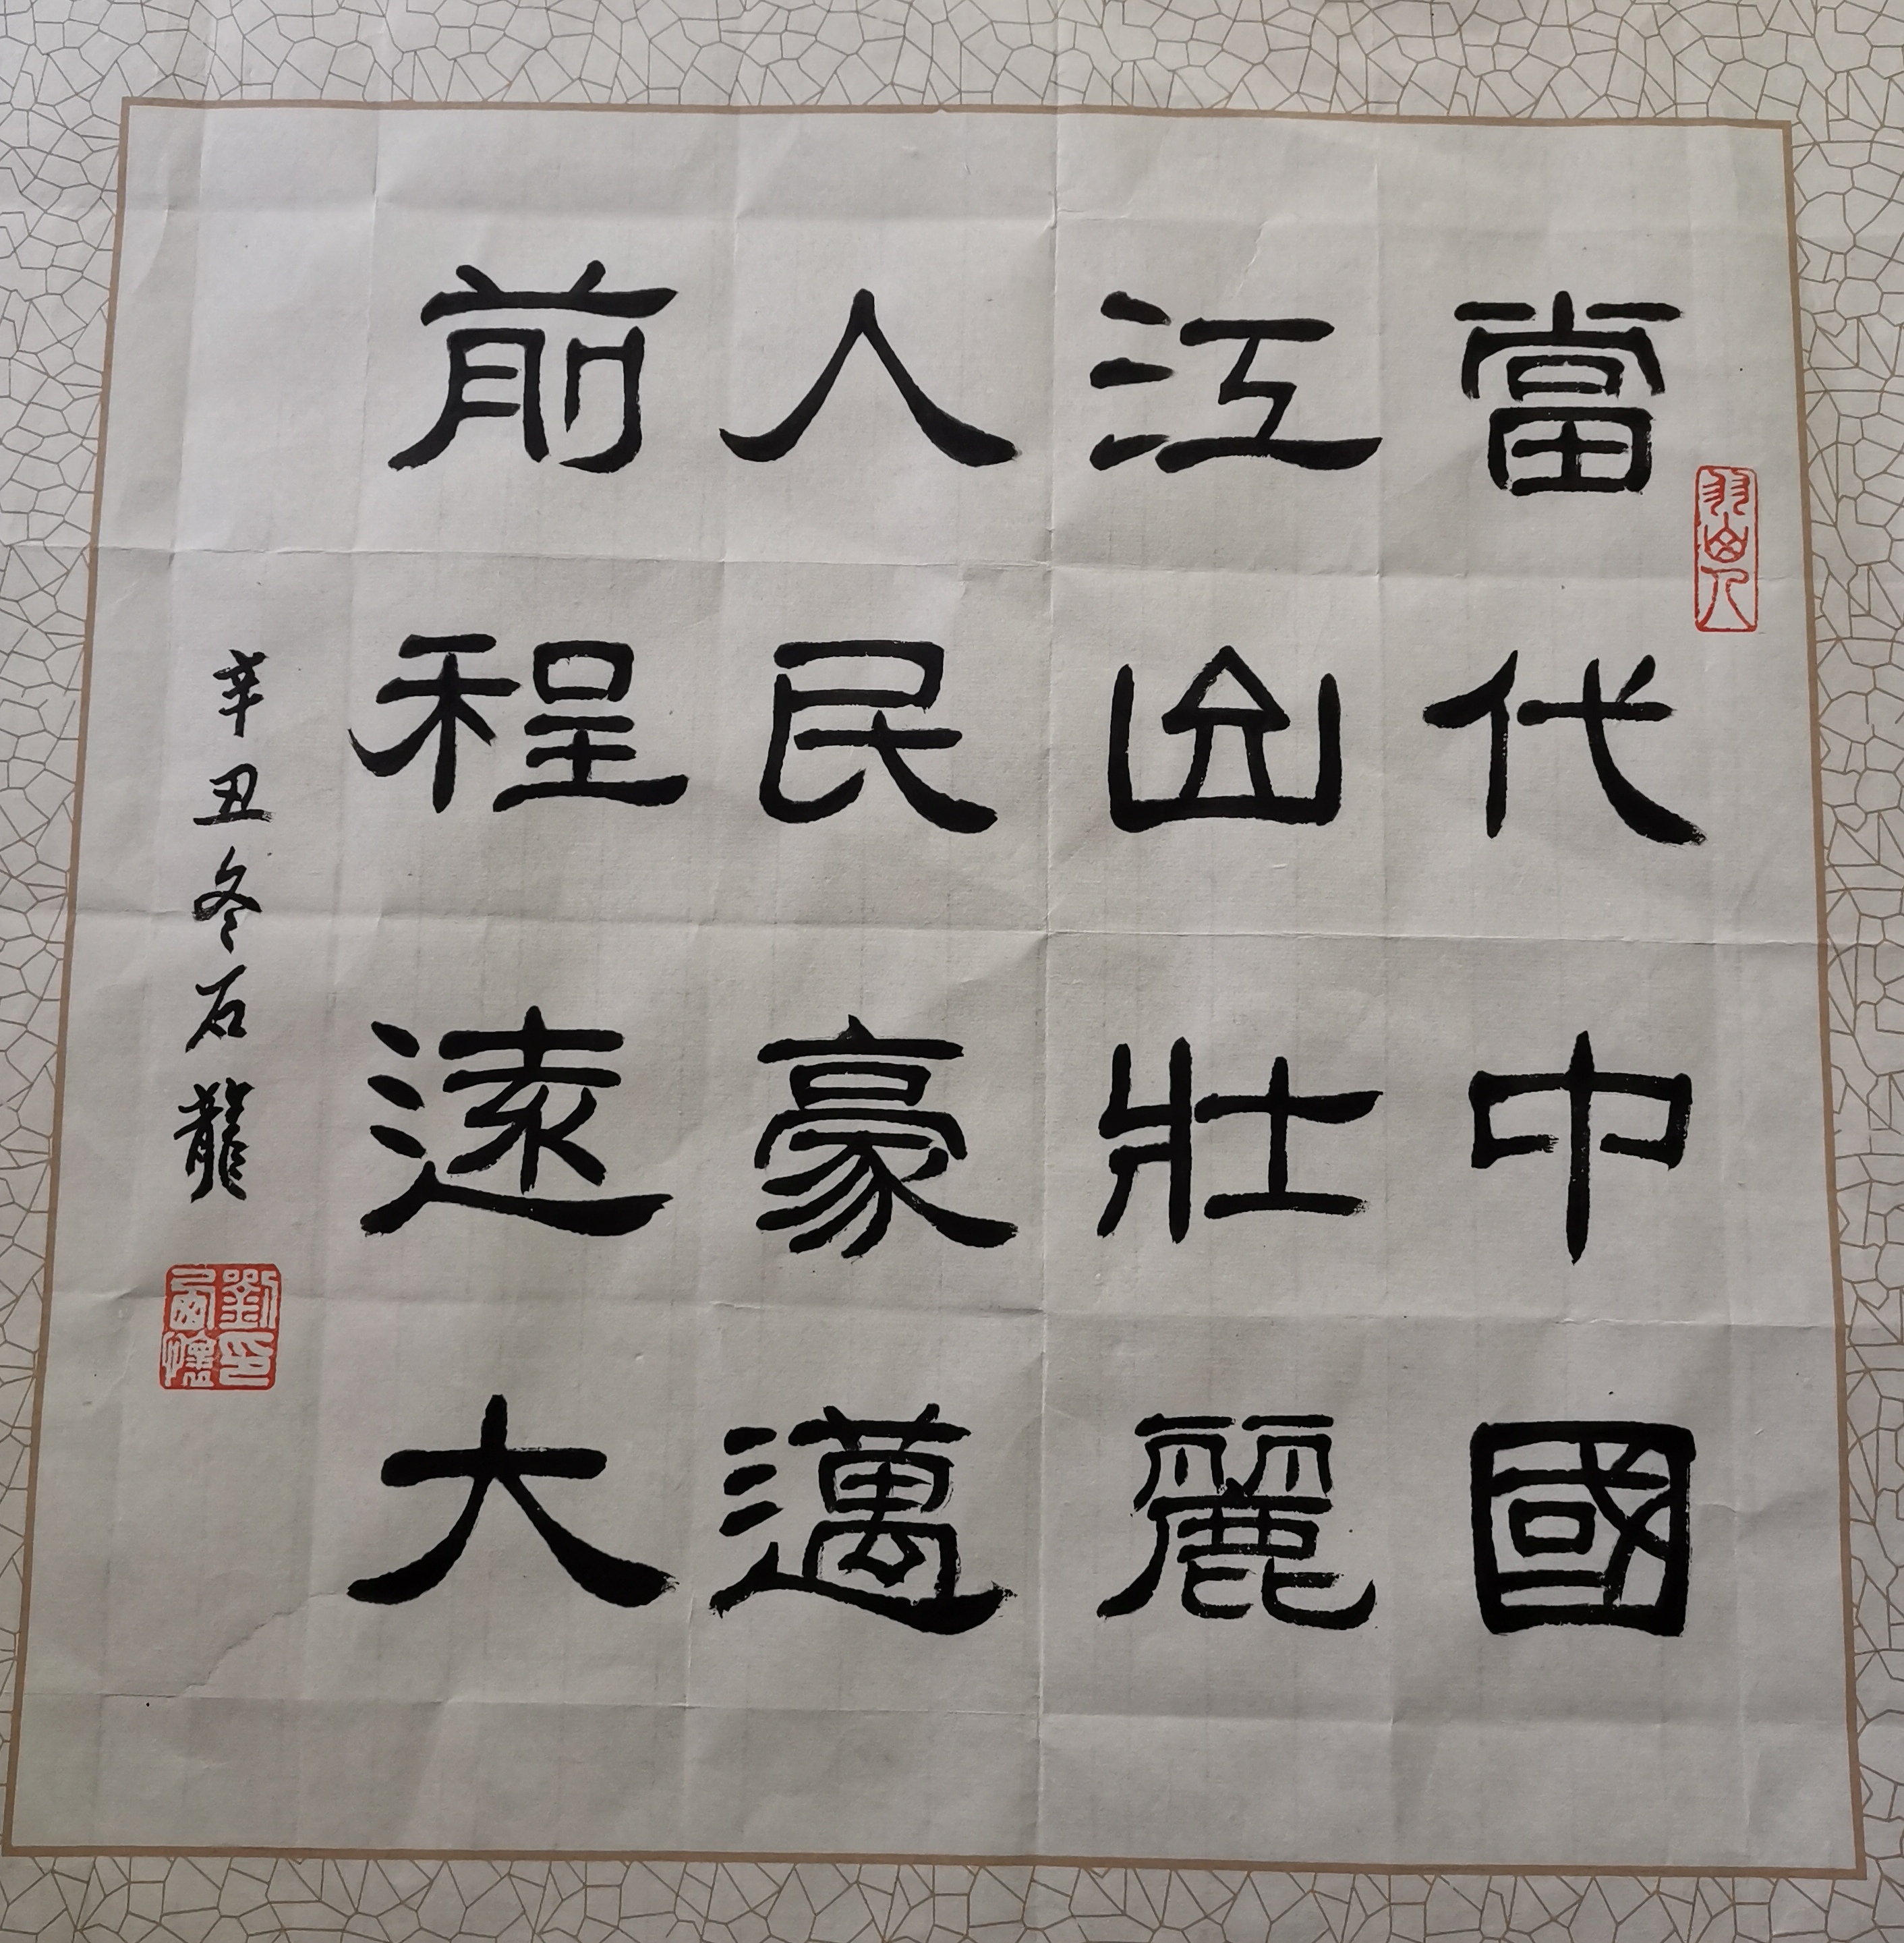 當代中國
江山壯麗
人民豪邁
前程遠大
辛丑冬石龍